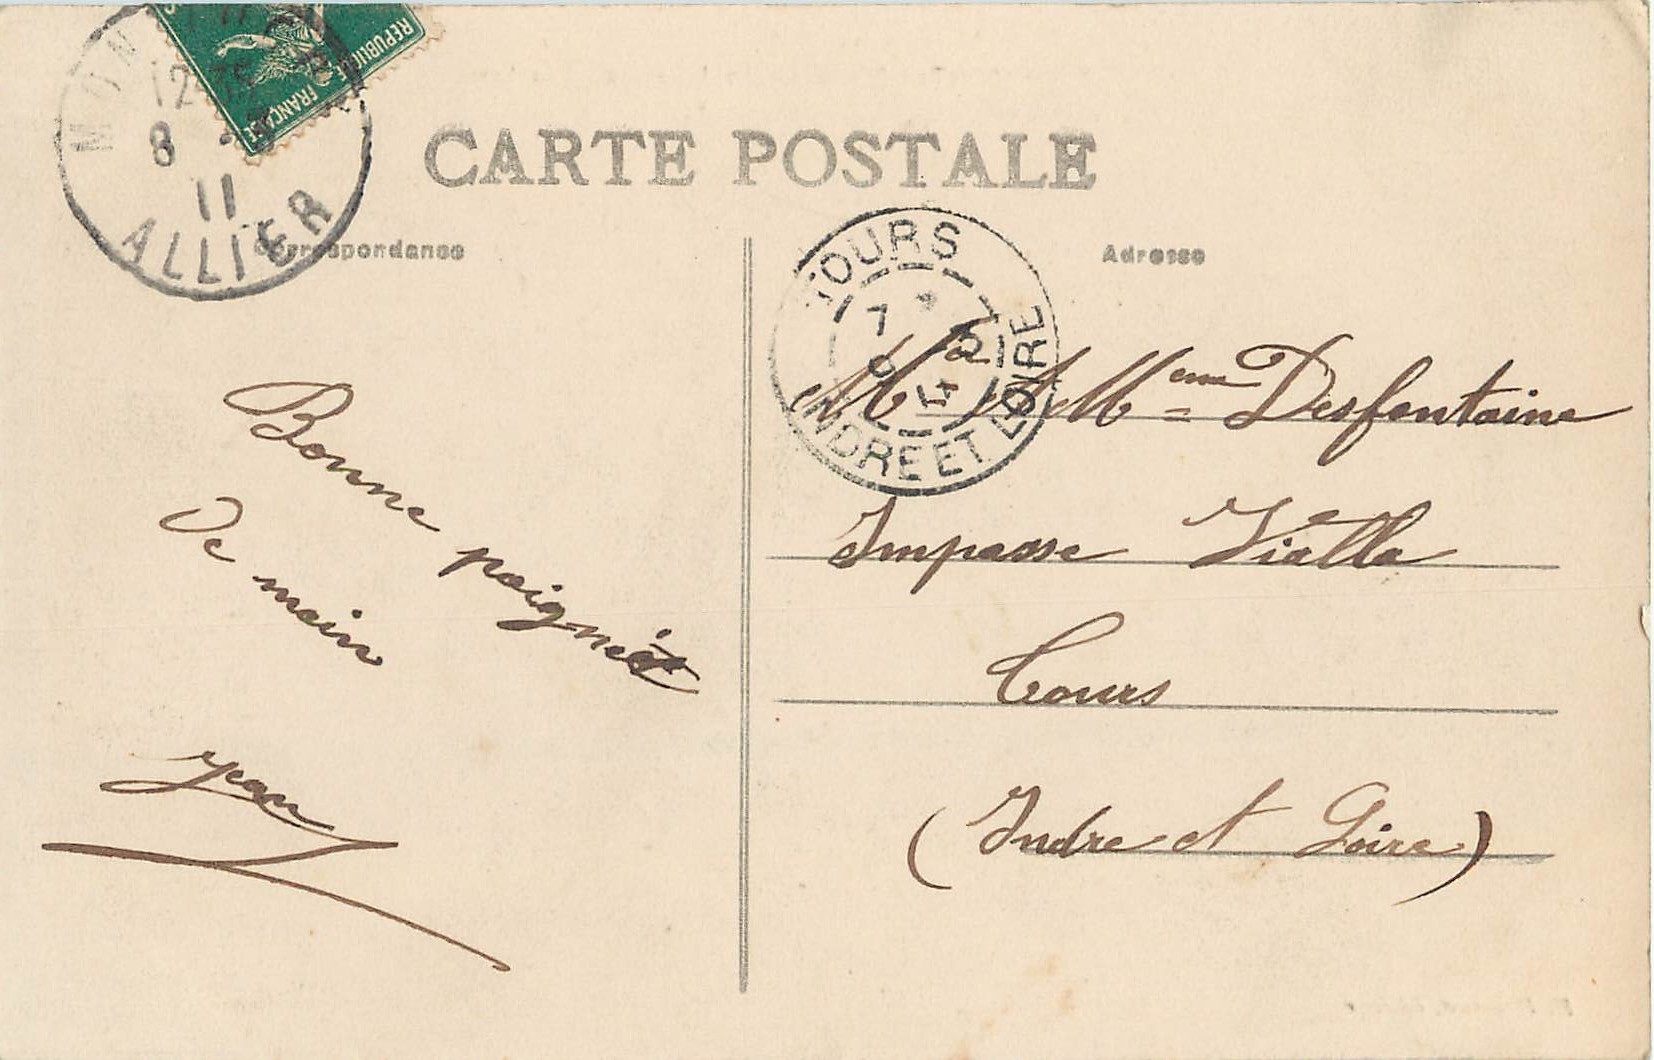 REPUBLIQUE FRANÇAISE
12
8
11
ALLIER
CARTE POSTALE
Correspondance
Adresse
TOURS
7
INDRE ET LOIRE
Desfontaine
Impasse Vialla
Tours
(Indre et Loire)
Bonne poignée
De main
Jean